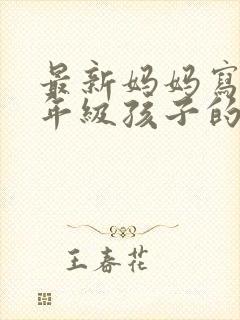 最新妈妈寫
年級孩子的
王春花